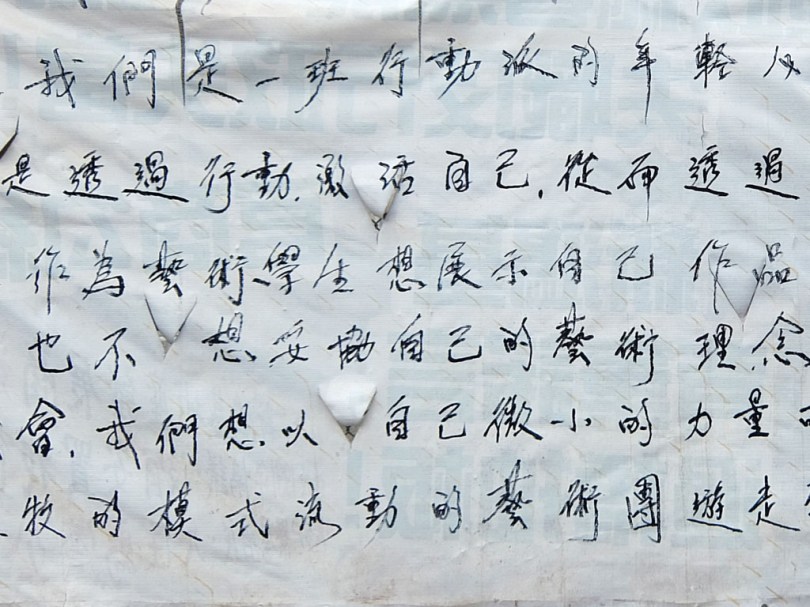 我們是一班行動派的年輕人
是透過行動,激活自己,從而透過
作為藝術學生想展示自己作品
也不想妥協自己的藝術理念
會,我們想以自己微小的力量
牧的模式流動的藝術團遊走